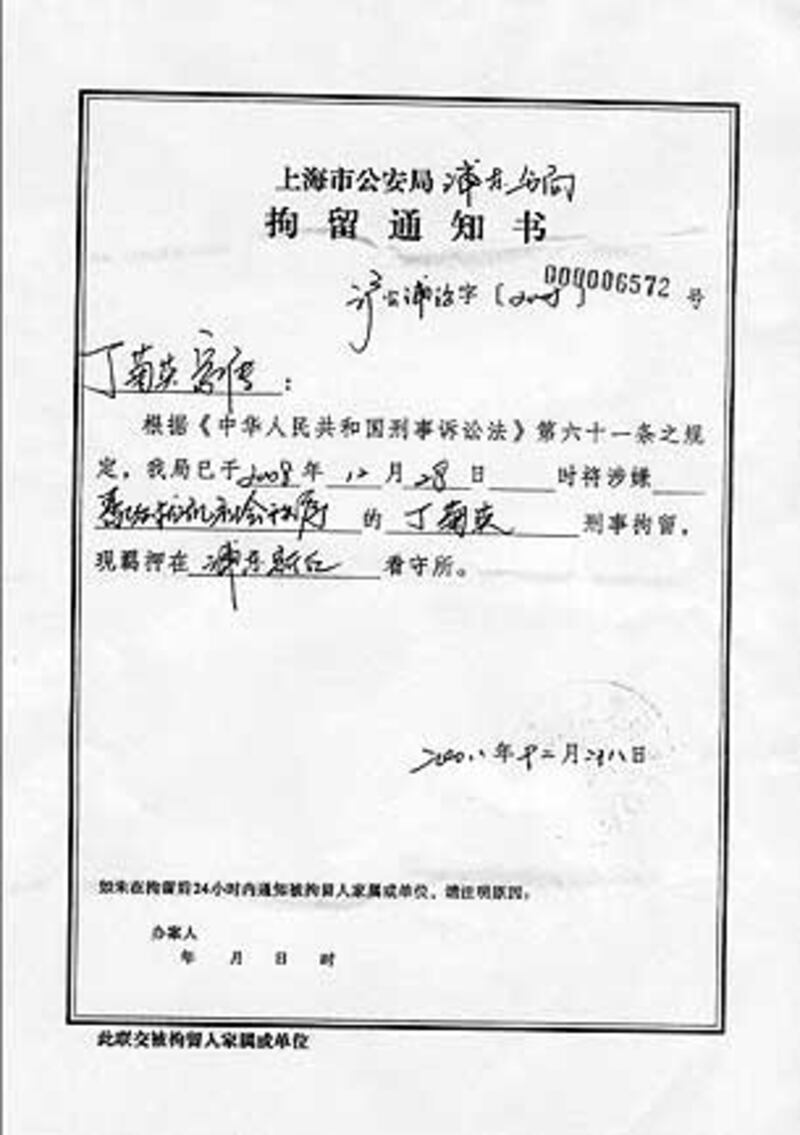 上海市公安局浦东分局
拘留通知书
沪公浦治字〔2008〕000006572号
丁菊英家属：
根据《中华人民共和国刑事诉讼法》第六十一条之规
定，我局已于2008年12月28日 时将涉嫌
扰乱社会秩序的丁菊英刑事拘留，
现羁押在浦东新区看守所。
二00八年十二月二十八日
如未在拘留后24小时内通知被拘留人家属或单位，请注明原因：
办案人
年 月 日 时
此联交被拘留人家属或单位